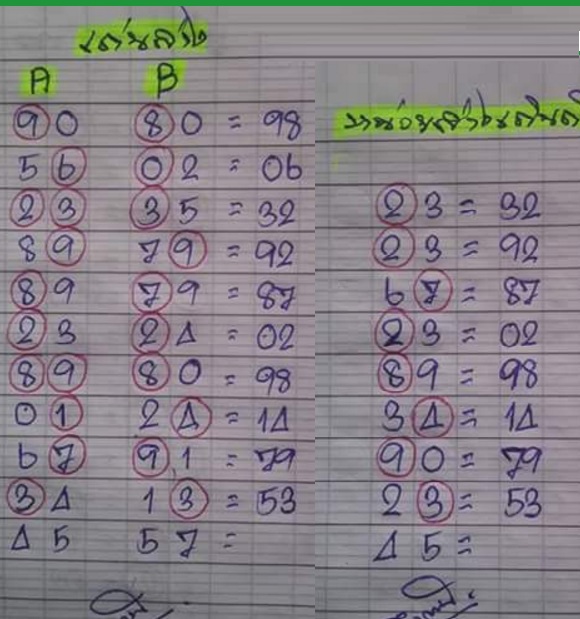 เด่นล่าง
A B
90 80 = 98
56 02 = 06
23 35 = 32
89 79 = 92
89 79 = 87
23 24 = 02
89 80 = 98
01 24 = 14
67 91 = 79
34 13 = 53
45 57 =
23 = 32
23 = 92
67 = 87
23 = 02
89 = 98
34 = 14
90 = 79
23 = 53
45 =